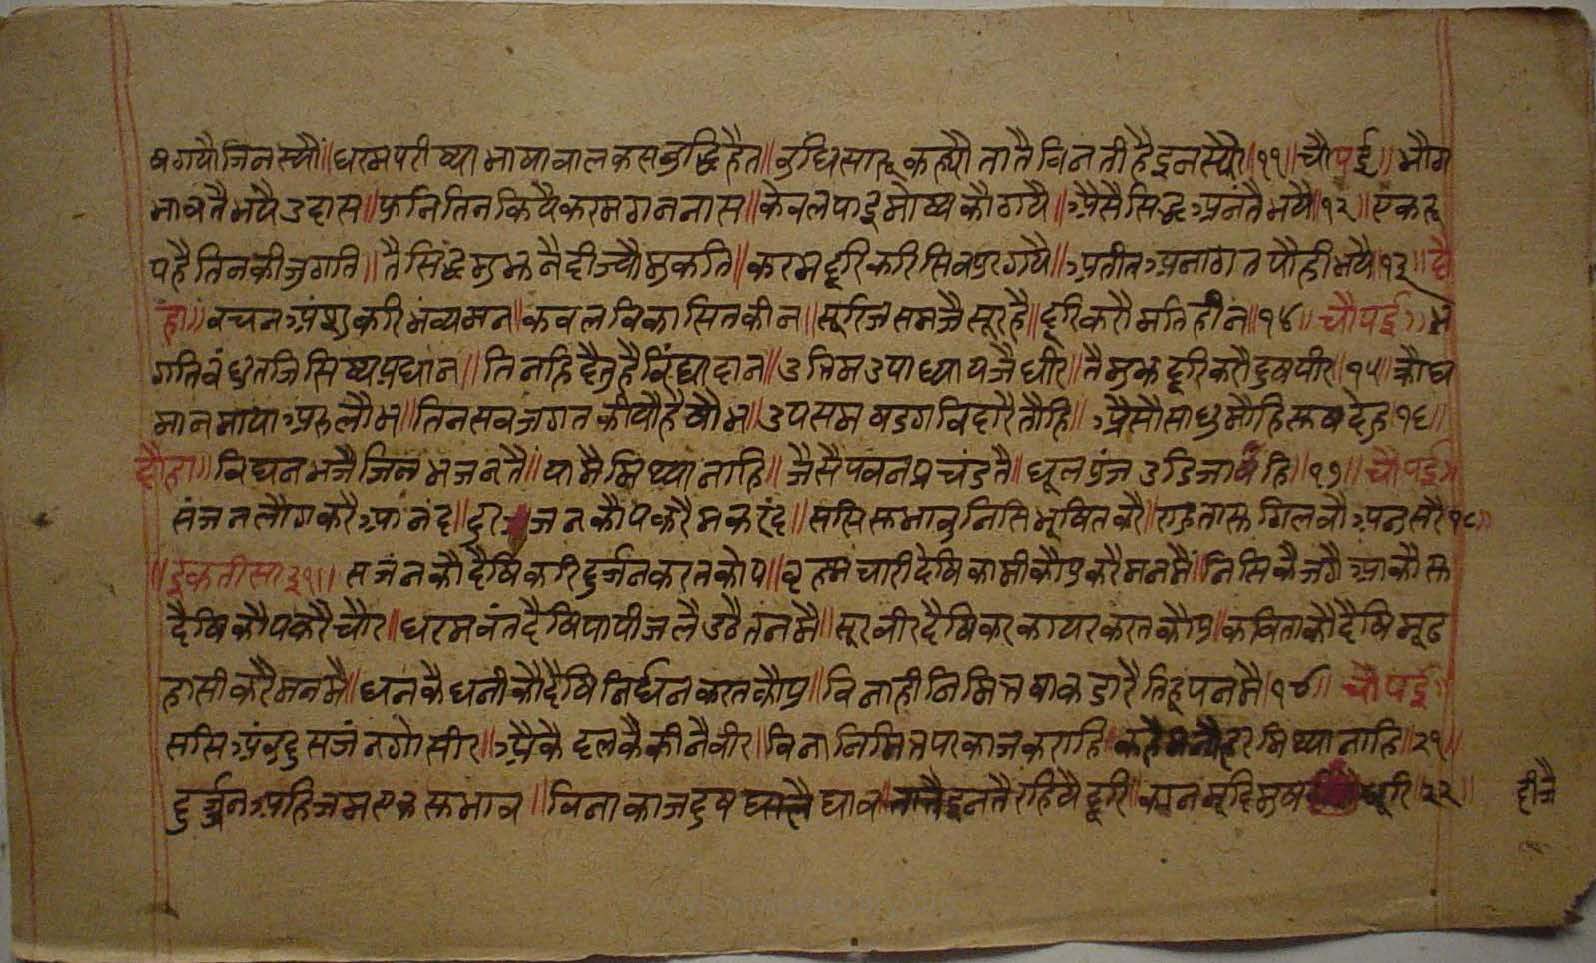 ष गयौ जिनस्यौं॥ धरमपरीष्या भाषा बालक सबुद्धि हेत॥ बुधि सारू कह्यौ तातै विनती है इनस्यौं॥११॥ चौपई॥ भोग
भावतै भये उदास॥ फुनि तिन कियै करम गन नास॥ केवल पाइ मोष्य कौ गयै॥ अैसै सिद्ध अनंतै भयै॥१२॥ एक रू
प है तिनकी जुगति॥ तै सिद्ध मुझनै दीज्यौ मुकति॥ करम दूरि करि सिवपुर गयै॥ अतीत अनागत यौही भयै॥१३॥ दो
हा॥ वचन अंशु करि भव्य मन॥ कवल विकासित कीन॥ सूरिज सम जै सूर है॥ दूरि करौ मति हीन॥१४॥ चौपई॥ भ
गति वंधु तजि सिष्य प्रधान॥ तिनहि दैतु है विद्यादान॥ उत्तिम उपाध्याय जै धीर॥ तै मुझ दूरि करौ दुष पीर॥१५॥ क्रोध
मान माया अरु लौभ॥ तिन सब जगत कीयौ है षौभ॥ उपसम षडग विदारै तौहि॥ अैसौ साधु मोहि सुष देहु १६॥
दौहा॥ विघन भजै जिन भजनतै॥ यामै मिथ्या नाहि॥ जैसै पवन प्रचंडतै॥ धूल पुंज उडि जावहि॥१७॥ चौपई॥
संजन लोग करै आनंद॥ दुरजन कौप करै मकरंद॥ ससि सुभाव निसि भूषित करै॥ राहु तासु गिलवौ अनुसरै १८॥
॥इकतीसा ३१॥ सजंनकौ दैषि करि दुर्जन करत कोप॥ वृह्मचारी देषि कामी कौपु करै मनमै॥ निसिकै जगै आकौ सु
दैषि कौप करै चौर॥ धरमवंत दैषि पापी जलै उठै तनमै॥ सूरवीर दैषि कर कायर करत कौपु॥ कविताकौ दैषि मूढ
हासी करै मनमै॥ धनकै धनीकौ दैषि निर्धन करत कौपु॥ विनाही निमित्त षाक डारै तिहू पनमै॥१९॥ चौपई॥
ससि अंबुदु सजंन गोसीर॥ अैकै दलकै कीनै वीर॥ विना निमित्त परकाज कराहि॥ मिथ्या नाहि॥२१॥
दुर्जन अहि जम एक सुभाव॥ विना काज दुष घालै घाव॥ तातै इनतै रहियै दूरि॥ कान मूदि मुष धूरि २२॥
दीजै